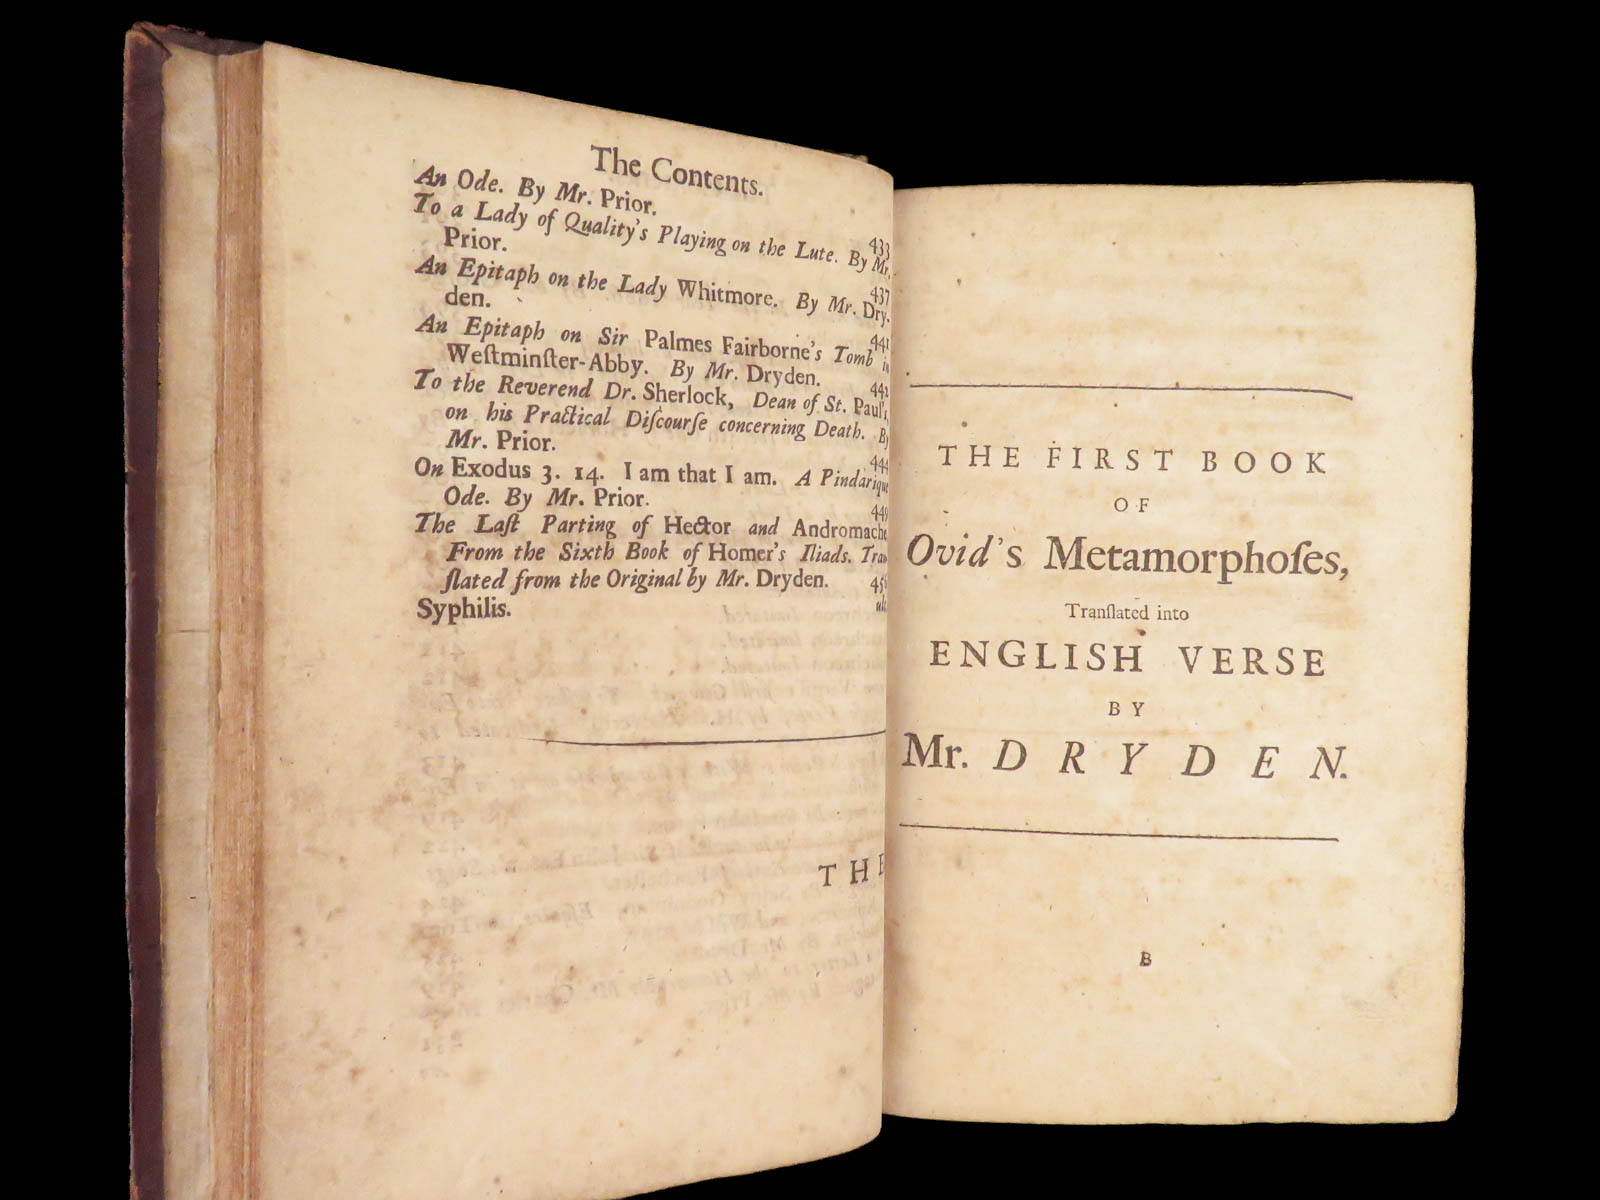 The Contents.
An Ode. By Mr. Prior. 433
To a Lady of Quality's Playing on the Lute. By Mr.
Prior. 437
An Epitaph on the Lady Whitmore. By Mr. Dry-
den. 441
An Epitaph on Sir Palmes Fairborne's Tomb in
Weſtminſter-Abby. By Mr. Dryden. 442
To the Reverend Dr. Sherlock, Dean of St. Paul's,
on his Practical Diſcourſe concerning Death. By
Mr. Prior. 444
On Exodus 3. 14. I am that I am. A Pindarique
Ode. By Mr. Prior. 449
The Laſt Parting of Hector and Andromache
From the Sixth Book of Homer's Iliads. Tran
ſlated from the Original by Mr. Dryden. 456
Syphilis. ult
THE
THE FIRST BOOK
OF
Ovid's Metamorphoſes,
Tranſlated into
ENGLISH VERSE
BY
Mr. DRYDEN.
B